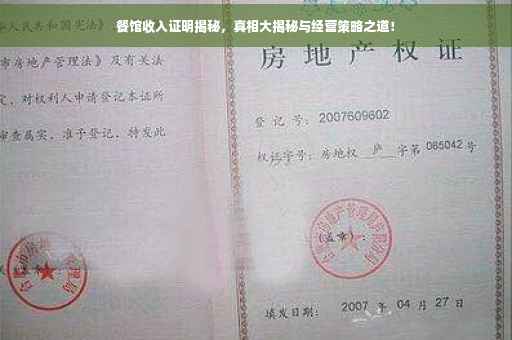 餐馆收入证明揭秘，真相大揭秘与经营策略之道！
人民共和国宪法》
市房地产管理法》及有关法
定，对权利人申请登记本证所
审查属实，准予登记，特发此
房地产权证
登记号：2007609602
权证字号：房地权 庐 字第 065042 号
(盖章)：
填发日期：2007 年 04 月 27 日